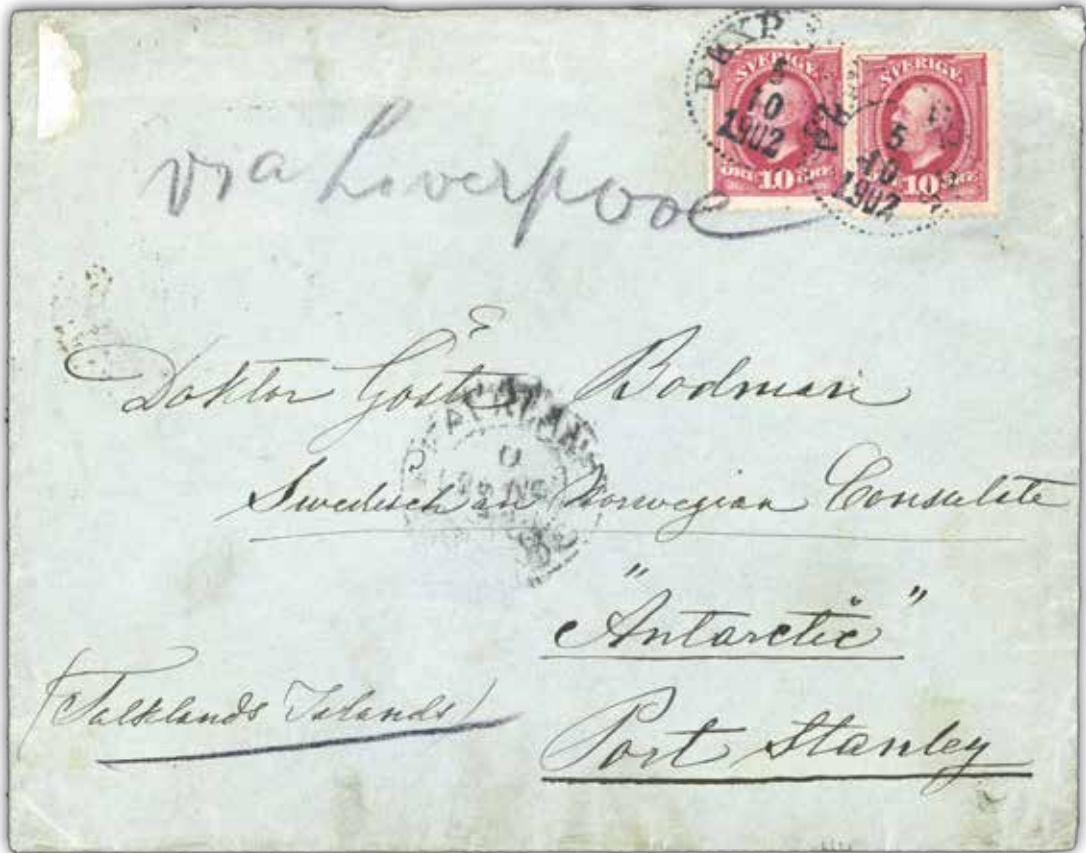 PKXP
5
10
1902
SVERIGE
ÖRE 10 ÖRE
PK
5
10
1902
SVERIGE
10 ÖRE
via Liverpool
Doktor Gösta Bodman
Swedisch an Norwegian Consulate
"Antarctic"
(Falklands Islands)
Port Stanley